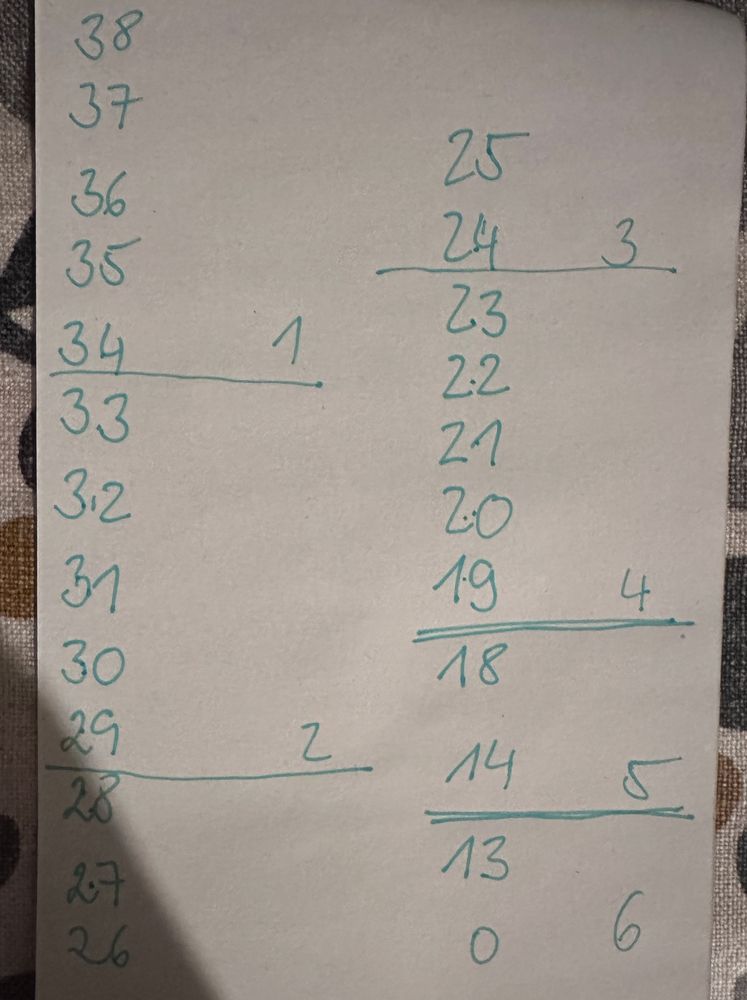 38
37
36
35
34 1
33
32
31
30
29 2
28
27
26
25
24 3
23
22
21
20
19 4
18
14 5
13
0 6